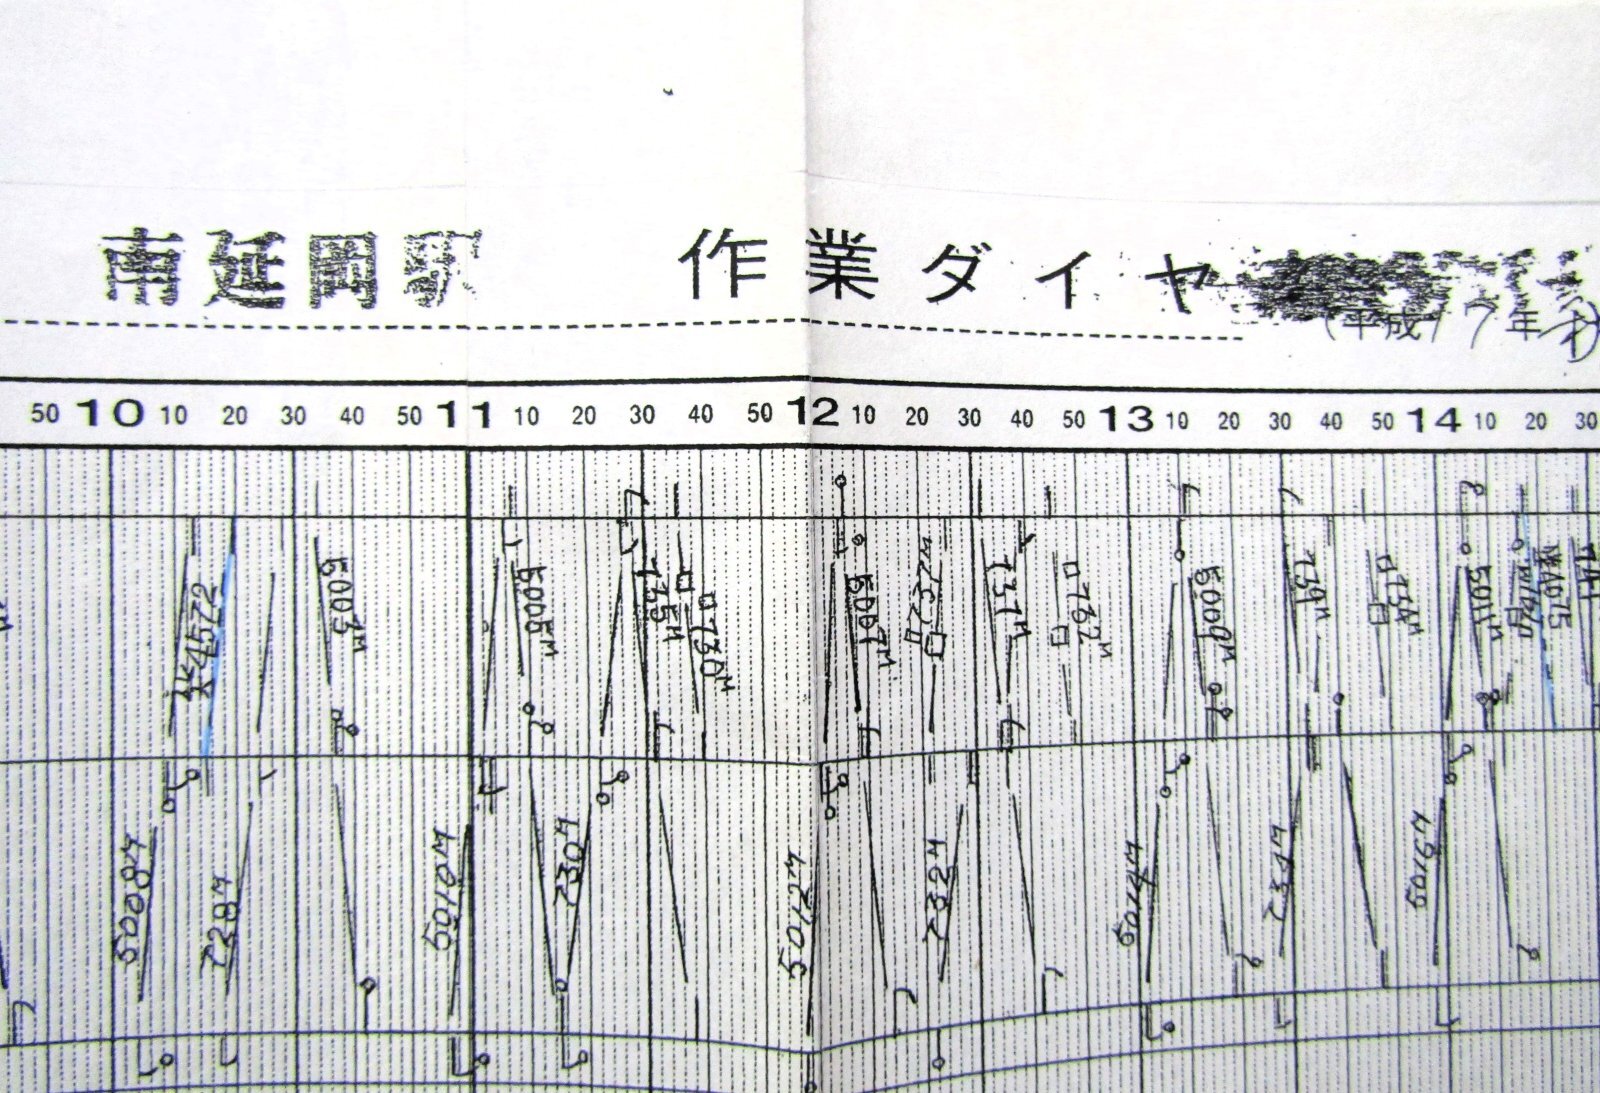 南延岡駅 作業ダイヤ
(平成17年
50 10 10 20 30 40 50 11 10 20 30 40 50 12 10 20 30 40 50 13 10 20 30 40 50 14 10 20 30
4572 5003M 5005M 735M 730M 5007M 737M 732M 5009M 739M 734M 5011M 741
5008M 728M 5010M 730M 5012M 732M 5014M 734M 5016M